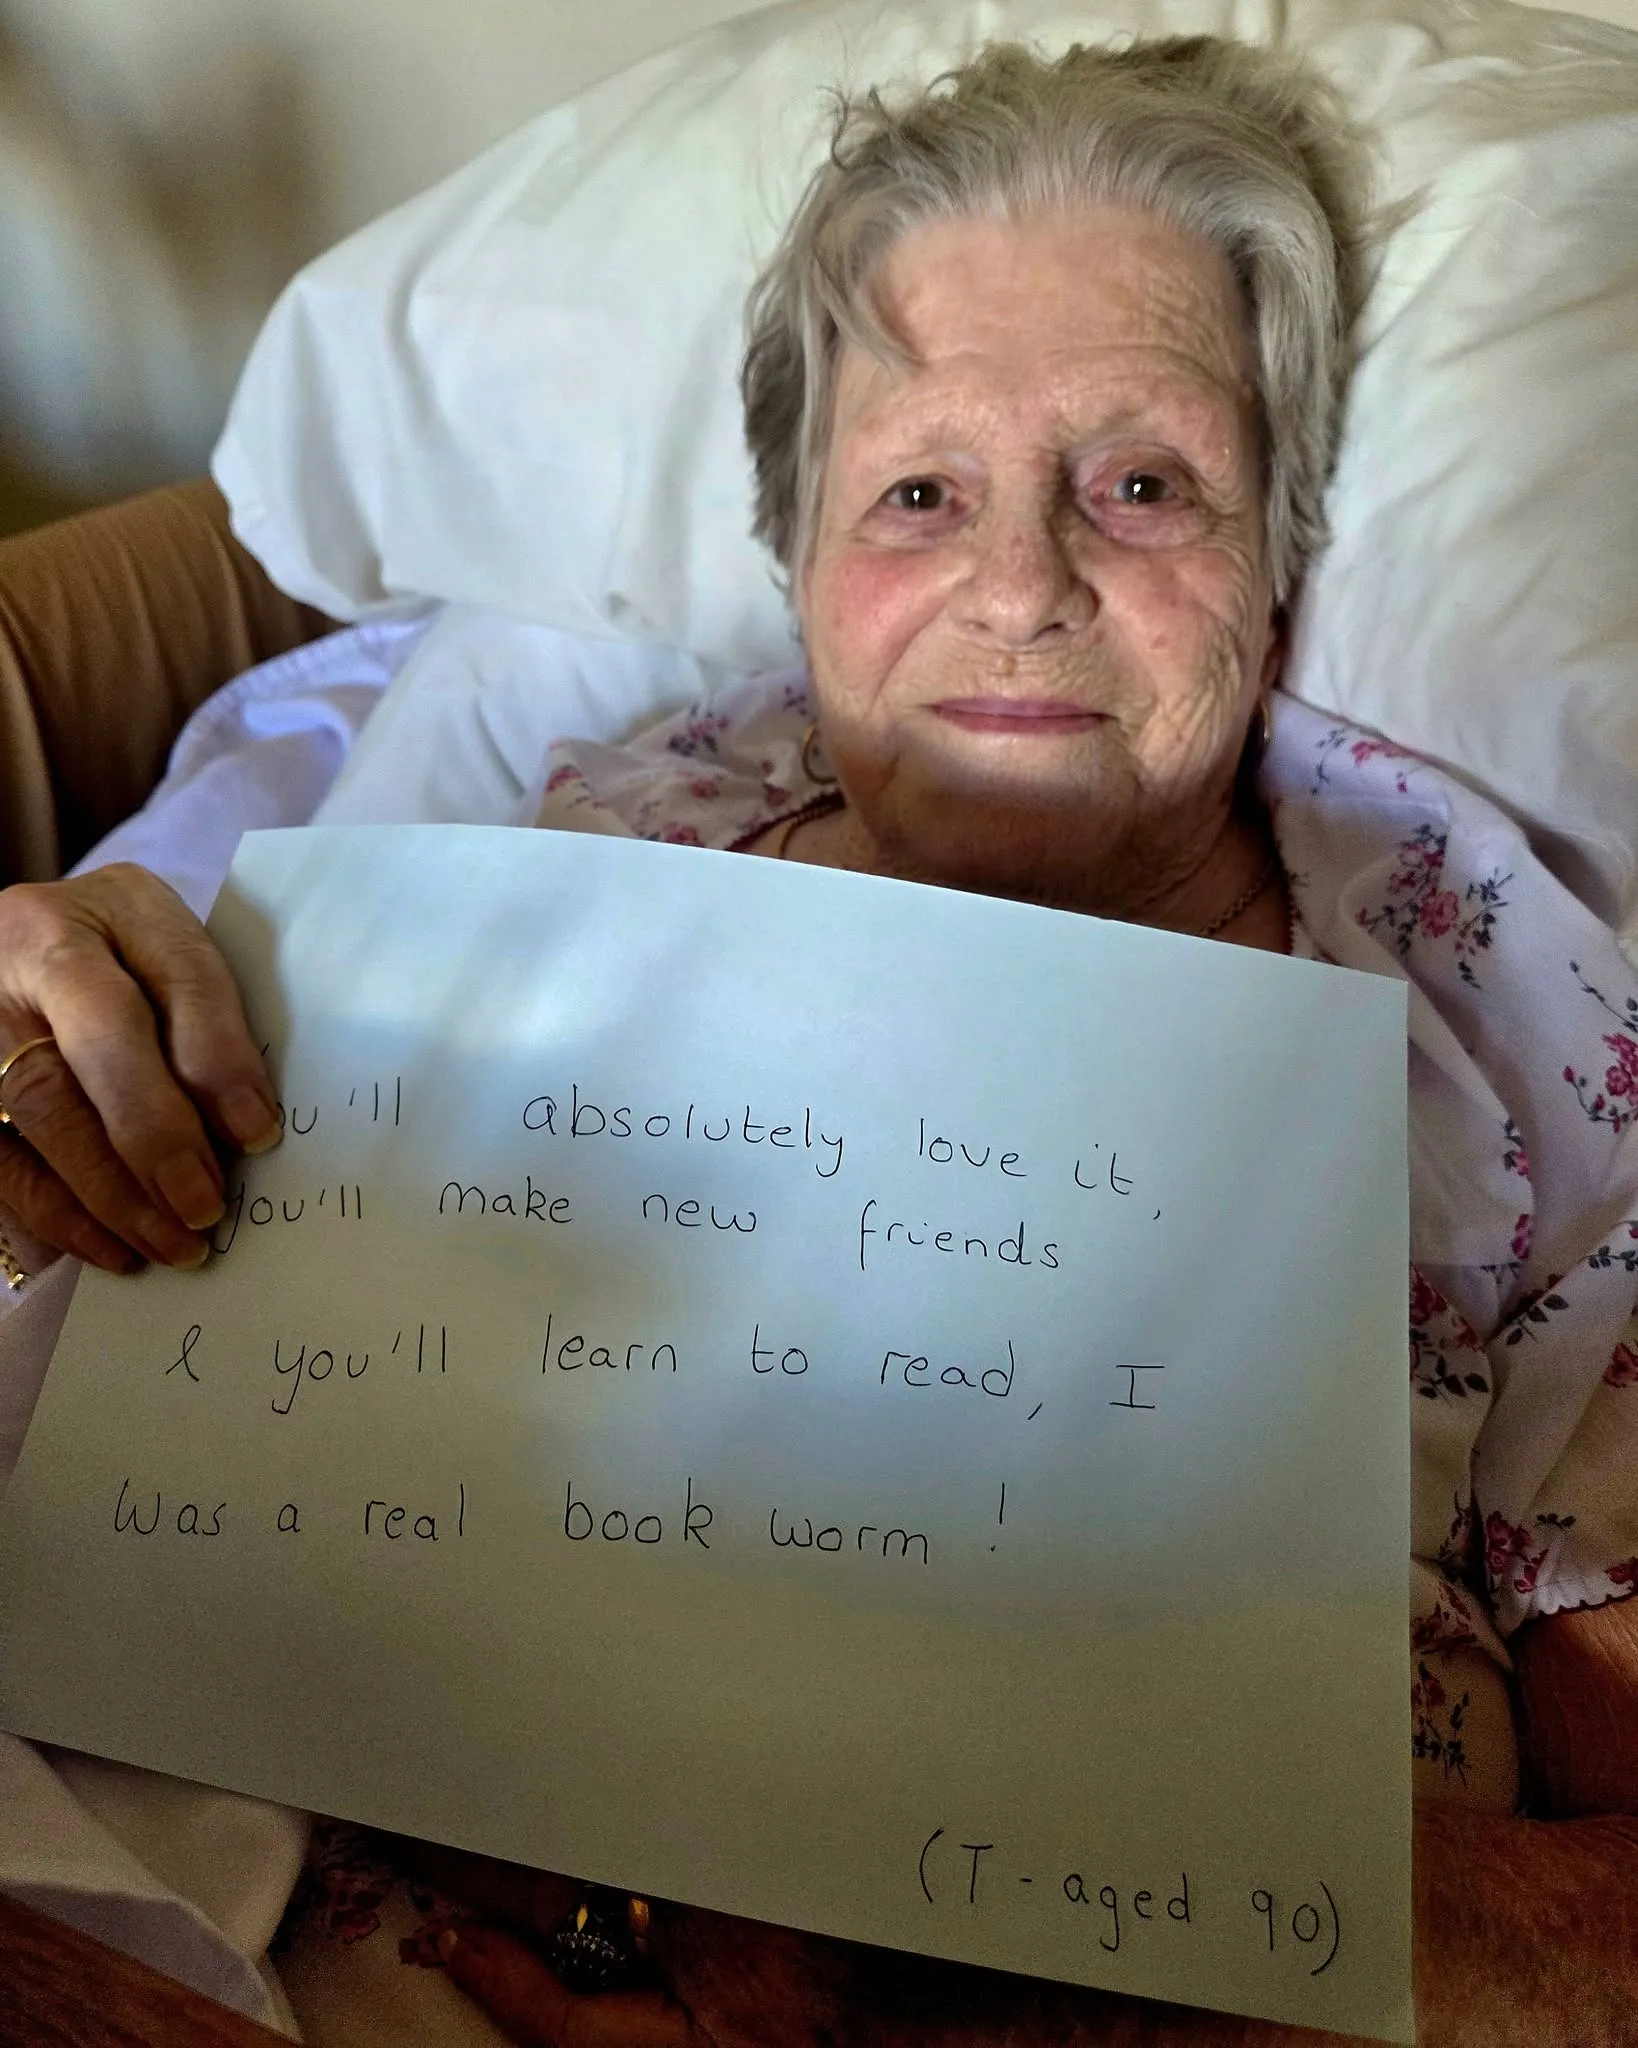 You'll absolutely love it,
you'll make new friends
& you'll learn to read, I
was a real book worm!
(T - aged 90)